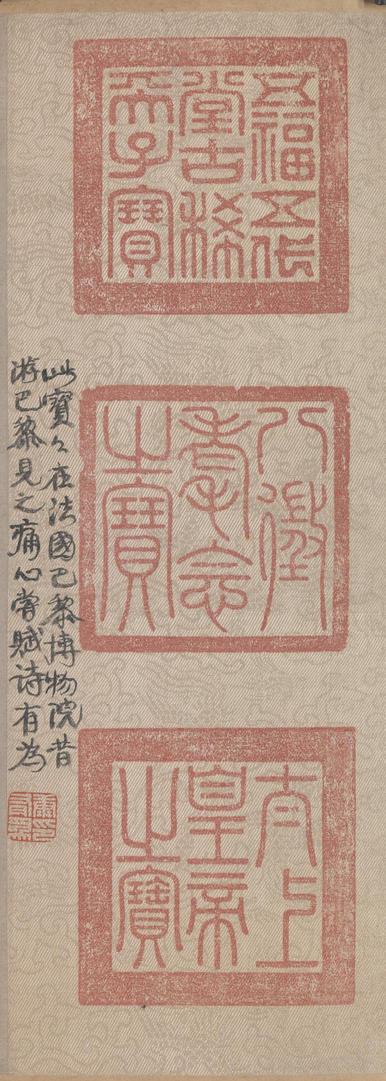 五福五代
堂古稀
天子寶
八徵
耄念
之寶
太上
皇帝
之寶
此寶今在法國巴黎博物院昔
游巴黎見之痛心嘗賦詩有為